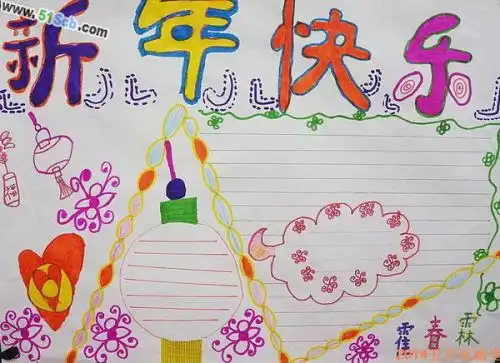 www.51Scb.com
新年快乐
霍春霖